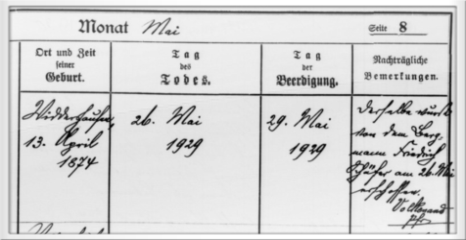 Monat Mai
Seite 8
Ort und Zeit
seiner
Geburt.
Tag
des
Todes.
Tag
der
Beerdigung.
Nachträgliche
Bemerkungen.
Widdershausen
13. April
1874
26. Mai
1929
29. Mai
1929
Derselbe wurde
von dem Berg-
mann Friedrich
Schäfer am 26. Mai
erschossen.